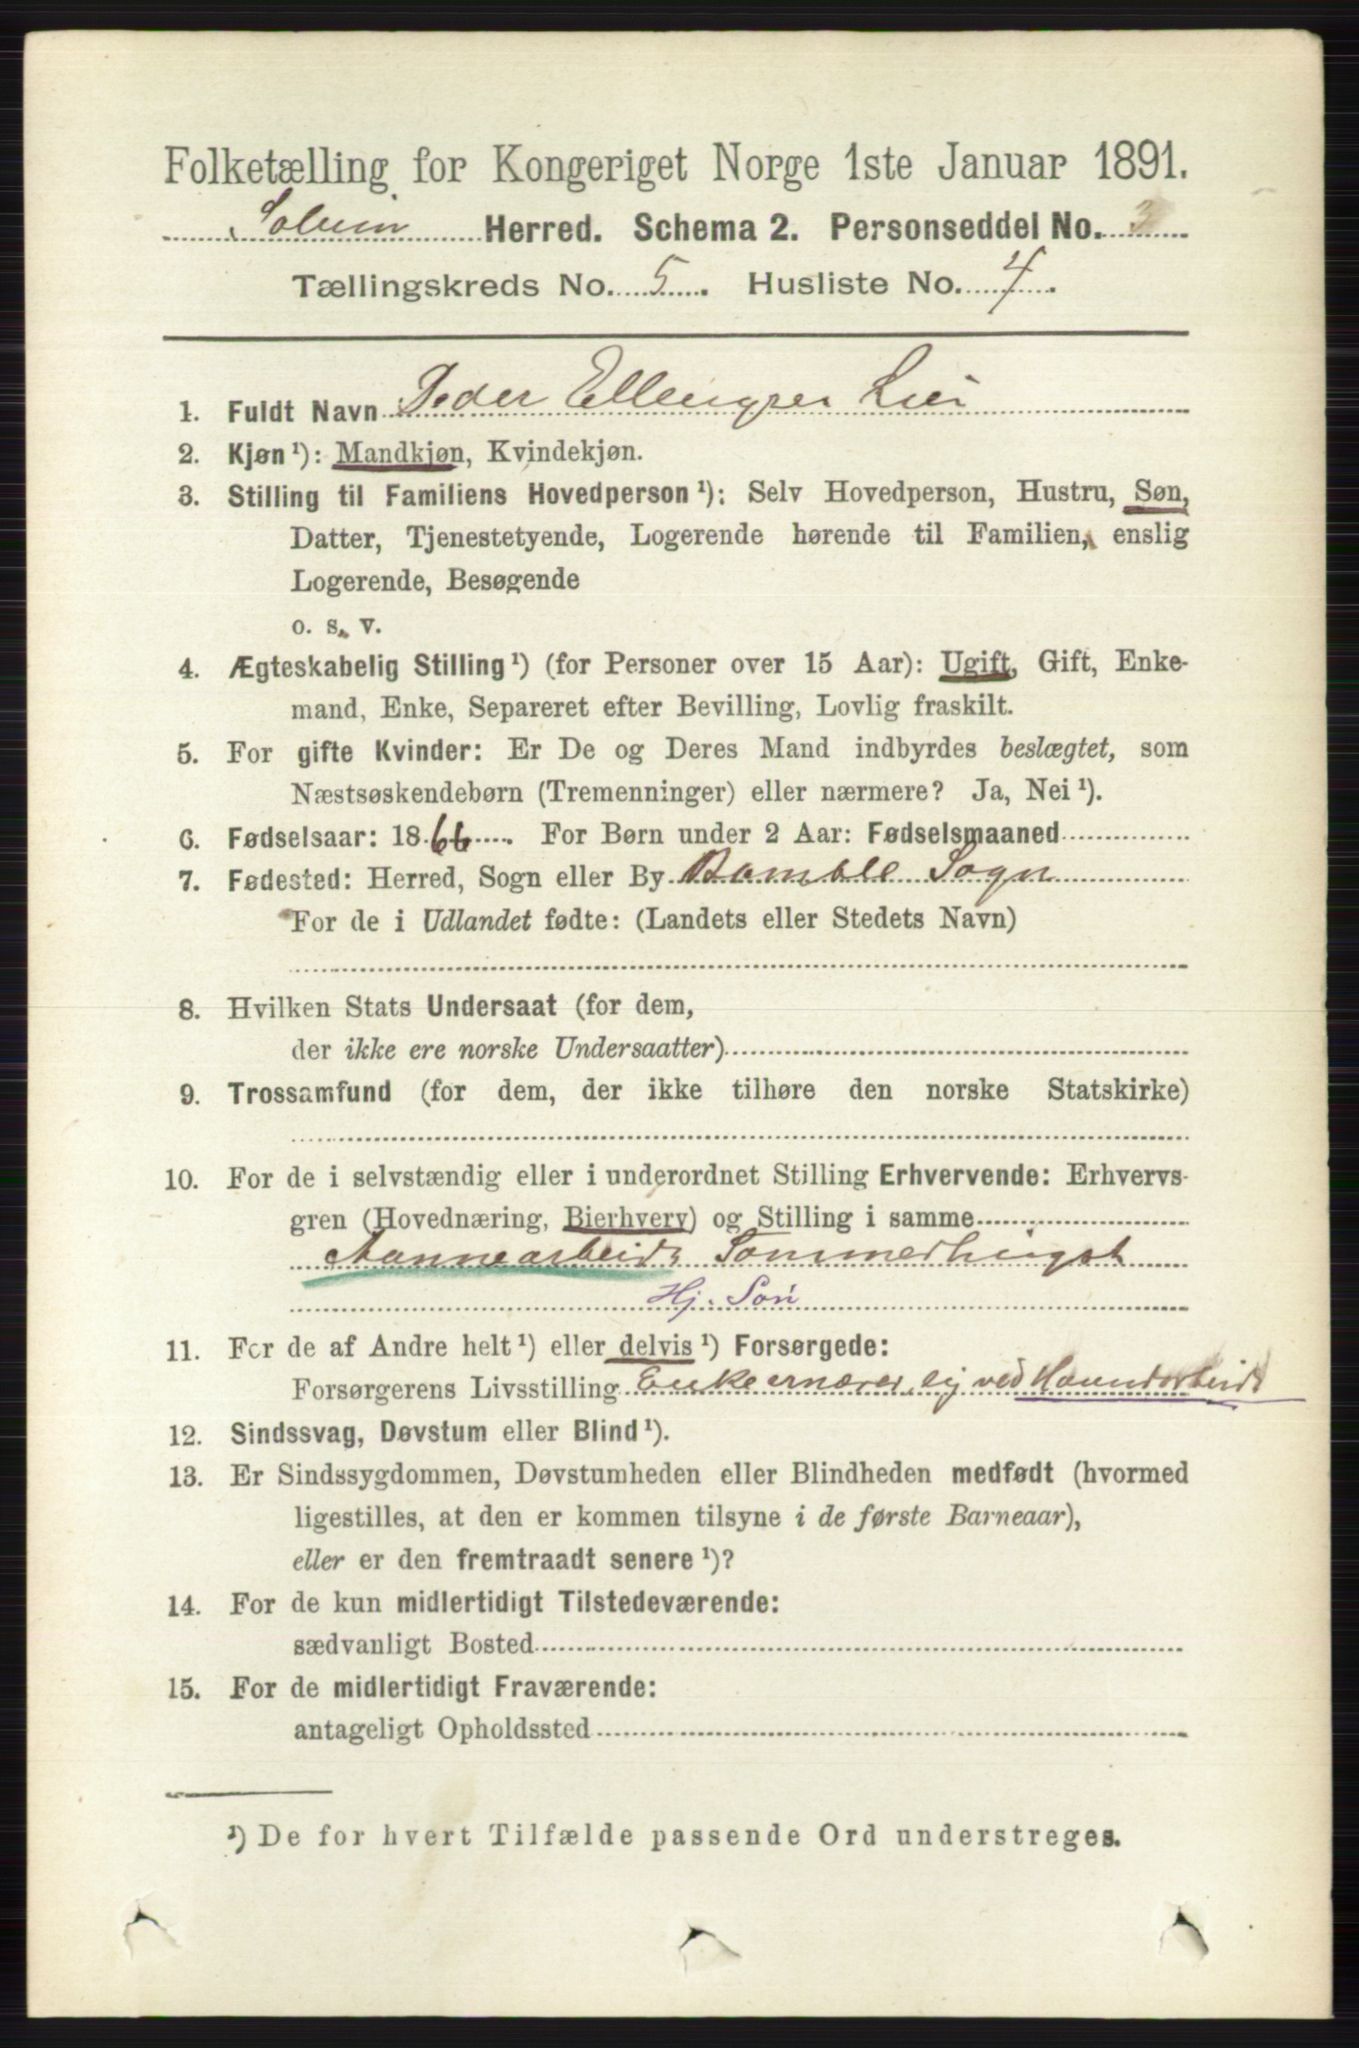 Folketælling for Kongeriget Norge 1ste Januar 1891.
Solum Herred. Schema 2. Personseddel No. 3
Tællingskreds No. 5. Husliste No. 4.
1. Fuldt Navn Peder Ellengsen Lie
2. Kjøn ¹): Mandkjøn, Kvindekjøn.
3. Stilling til Familiens Hovedperson ¹): Selv Hovedperson, Hustru, Søn,
Datter, Tjenestetyende, Logerende hørende til Familien, enslig
Logerende, Besøgende
o. s. v.
4. Ægteskabelig Stilling ¹) (for Personer over 15 Aar): Ugift, Gift, Enke-
mand, Enke, Separeret efter Bevilling, Lovlig fraskilt.
5. For gifte Kvinder: Er De og Deres Mand indbyrdes beslægtet, som
Næstsøskendebørn (Tremenninger) eller nærmere? Ja, Nei ¹).
6. Fødselsaar: 1866. For Børn under 2 Aar: Fødselsmaaned
7. Fødested: Herred, Sogn eller By Bamble Sogn
For de i Udlandet fødte: (Landets eller Stedets Navn)
8. Hvilken Stats Undersaat (for dem,
der ikke ere norske Undersaatter)
9. Trossamfund (for dem, der ikke tilhøre den norske Statskirke)
10. For de i selvstændig eller i underordnet Stilling Erhvervende: Erhvervs-
gren (Hovednæring, Bierhverv) og Stilling i samme
Sommer
Hj. Søn
11. For de af Andre helt ¹) eller delvis ¹) Forsørgede:
Forsørgerens Livsstilling Enke ernærer sig ved Haandarbeide
12. Sindssvag, Døvstum eller Blind ¹).
13. Er Sindssygdommen, Døvstumheden eller Blindheden medfødt (hvormed
ligestilles, at den er kommen tilsyne i de første Barneaar),
eller er den fremtraadt senere ¹)?
14. For de kun midlertidigt Tilstedeværende:
sædvanligt Bosted
15. For de midlertidigt Fraværende:
antageligt Opholdssted
¹) De for hvert Tilfælde passende Ord understreges.